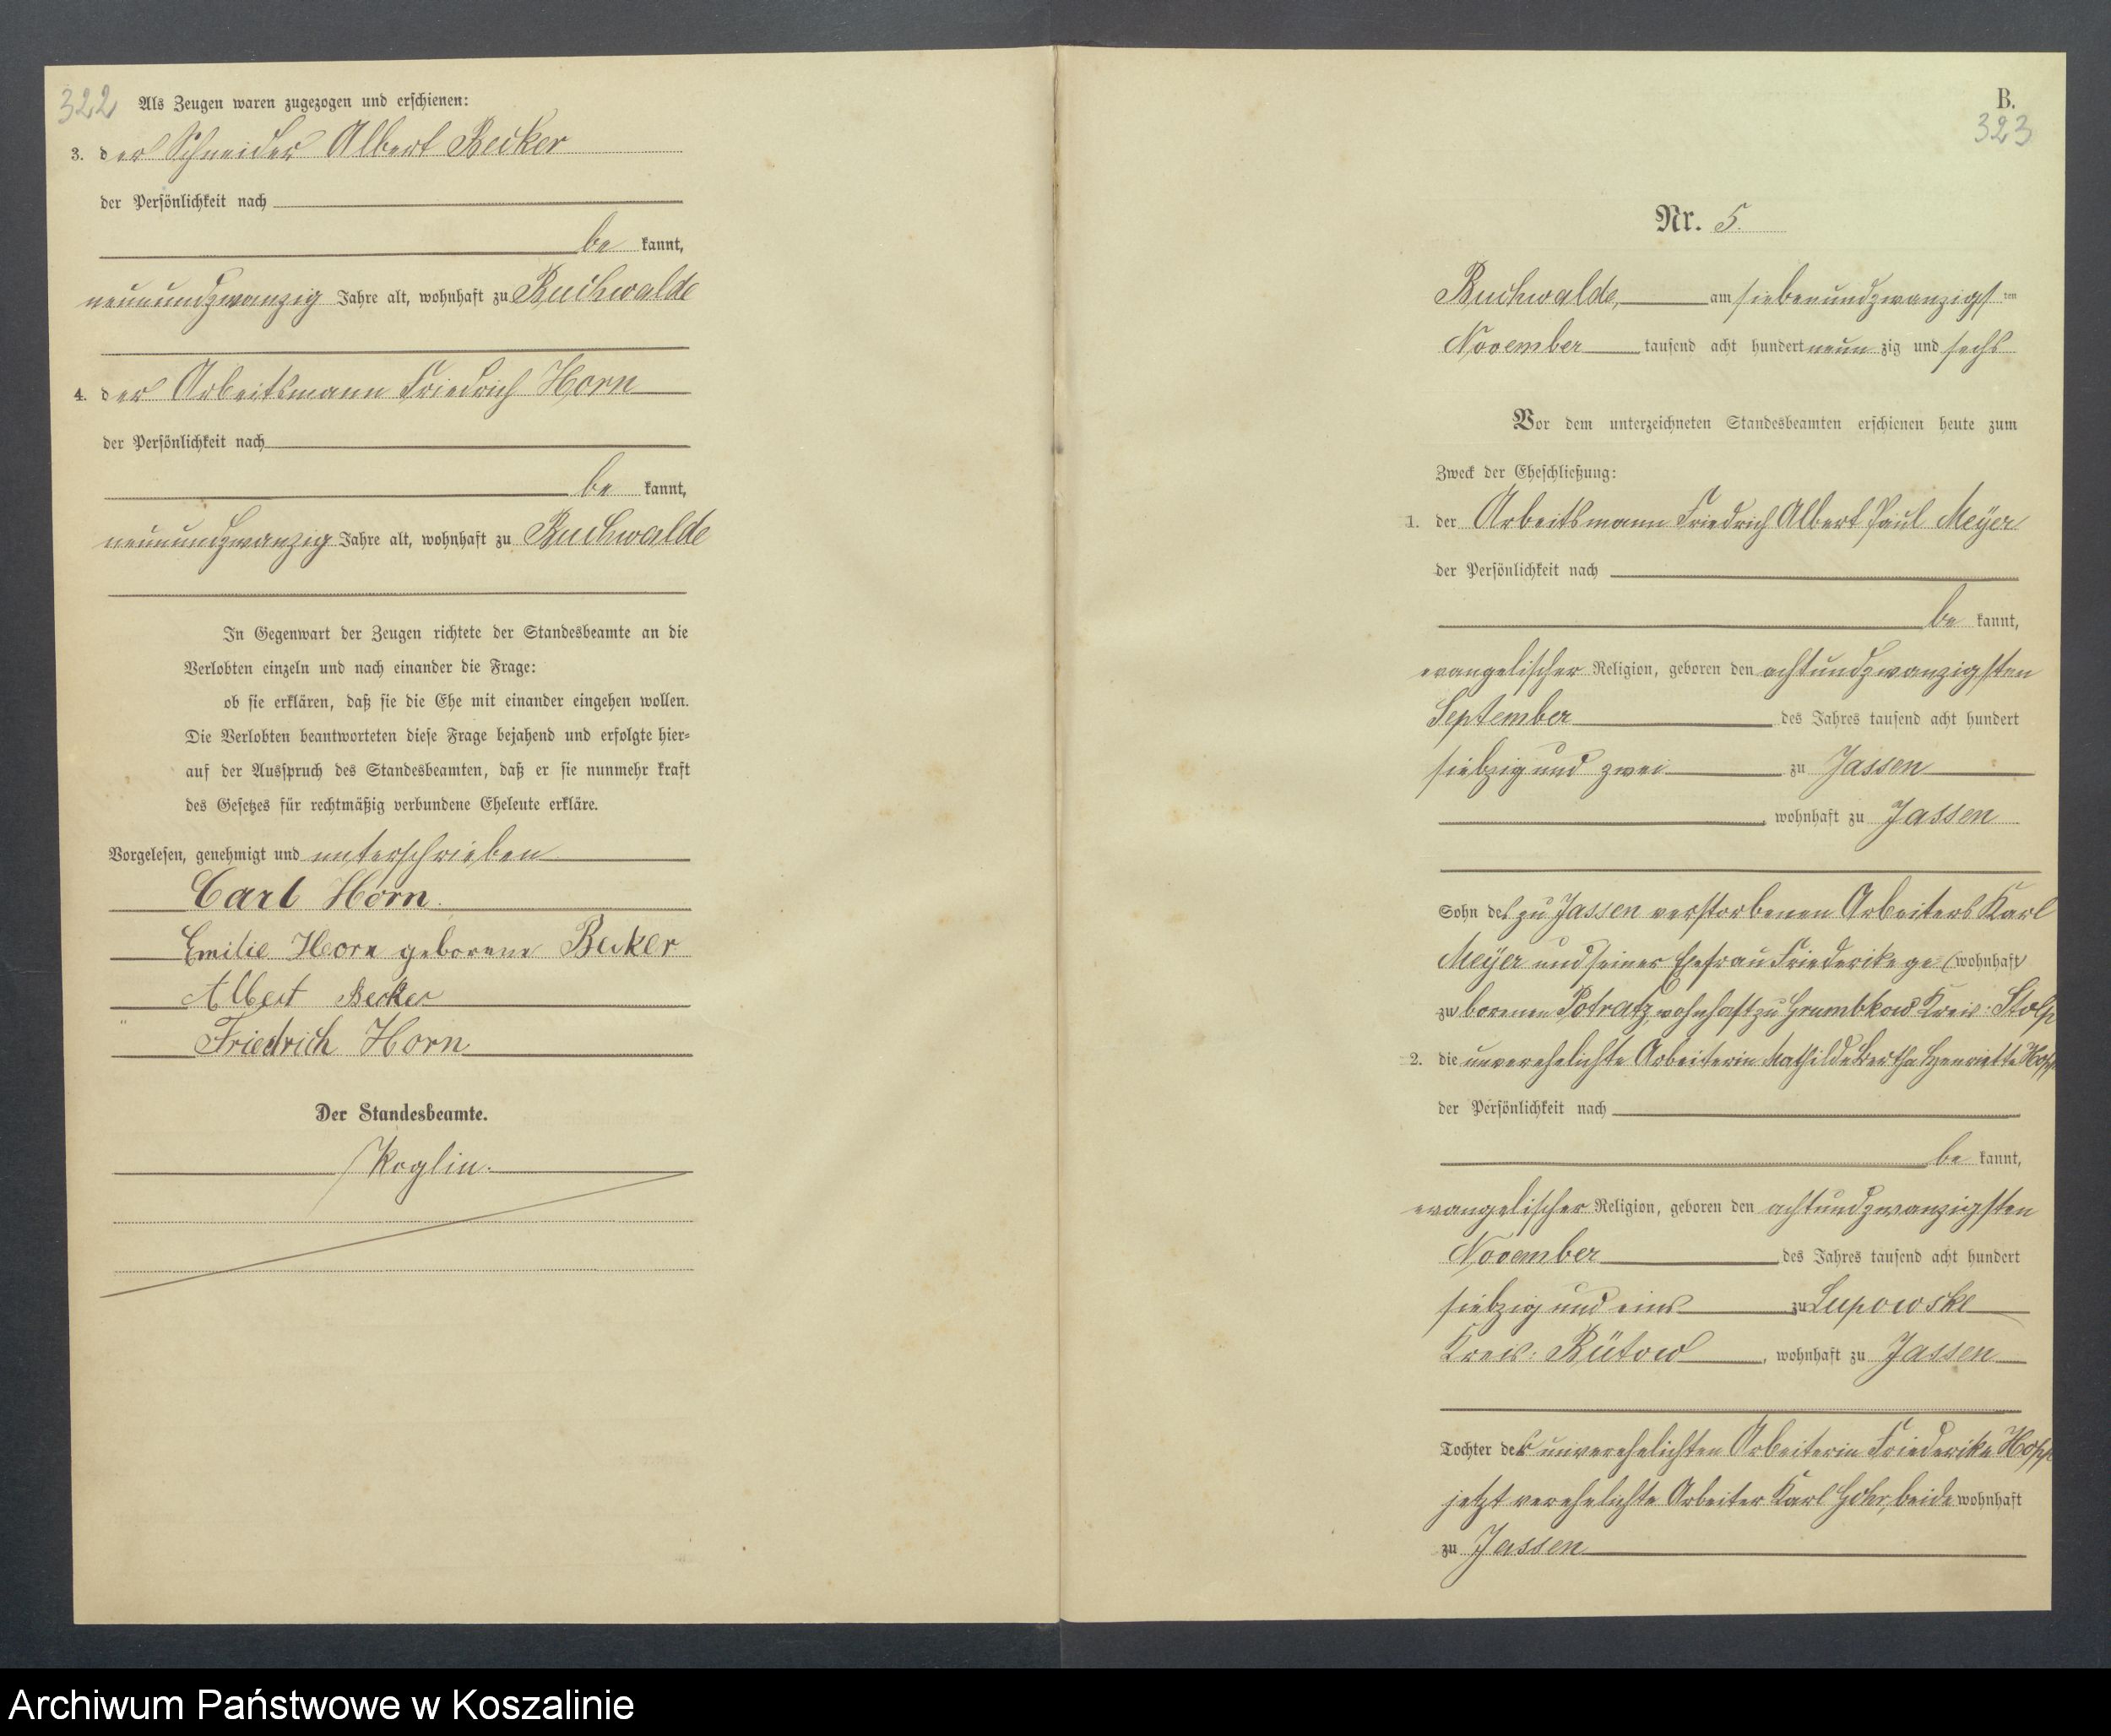 322
Als Zeugen waren zugezogen und erschienen:
3. der Schneider Albert Becker
der Persönlichkeit nach
be kannt,
neunundzwanzig Jahre alt, wohnhaft zu Buchwalde
4. der Arbeitsmann Friedrich Horn
der Persönlichkeit nach
be kannt,
neunundzwanzig Jahre alt, wohnhaft zu Buchwalde
In Gegenwart der Zeugen richtete der Standesbeamte an die
Verlobten einzeln und nach einander die Frage:
ob sie erklären, daß sie die Ehe mit einander eingehen wollen.
Die Verlobten beantworteten diese Frage bejahend und erfolgte hier-
auf der Ausspruch des Standesbeamten, daß er sie nunmehr kraft
des Gesetzes für rechtmäßig verbundene Eheleute erkläre.
Vorgelesen, genehmigt und unterschrieben
Carl Horn.
Emilie Horn geborene Becker
Albert Becker
Friedrich Horn
Der Standesbeamte.
Koglin.
B.
323
Nr. 5.
Buchwalde, am siebenundzwanzigst ten
November tausend acht hundert neun zig und sechs
Vor dem unterzeichneten Standesbeamten erschienen heute zum
Zweck der Eheschließung:
1. der Arbeitsmann Friedrich Albert Paul Meÿer
der Persönlichkeit nach
be kannt,
evangelischer Religion, geboren den achtundzwanzigsten
September des Jahres tausend acht hundert
siebzig und zwei zu Jassen
, wohnhaft zu Jassen
Sohn des zu Jassen verstorbenen Arbeiters Karl
Meÿer und seiner Ehefrau Friederike ge (wohnhaft
zu borenen Potratz, wohnhaft zu Grumbkow Kreis: Stolp
2. die unverehelichte Arbeiterin Mathilde Bertha Henriette Hopp
der Persönlichkeit nach
be kannt,
evangelischer Religion, geboren den achtundzwanzigsten
November des Jahres tausend acht hundert
siebzig und eins zu Lupowske
Kreis: Bütow, wohnhaft zu Jassen
Tochter der unverehelichten Arbeiterin Friederike Hopp
jetzt verehelichte Arbeiter Karl Gohr, beide wohnhaft
zu Jassen
Archiwum Państwowe w Koszalinie